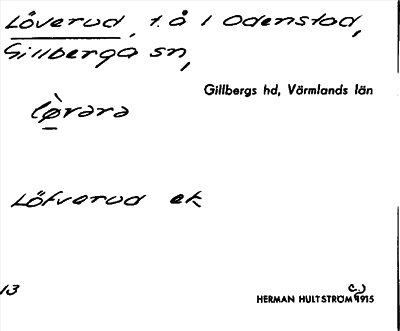 Löverud, t. å 1 Odenstad,
Gillberga sn,
Gillbergs hd, Värmlands län
lø̀vərə
Löfverud ek
13
HERMAN HULTSTRÖM c.) 1915